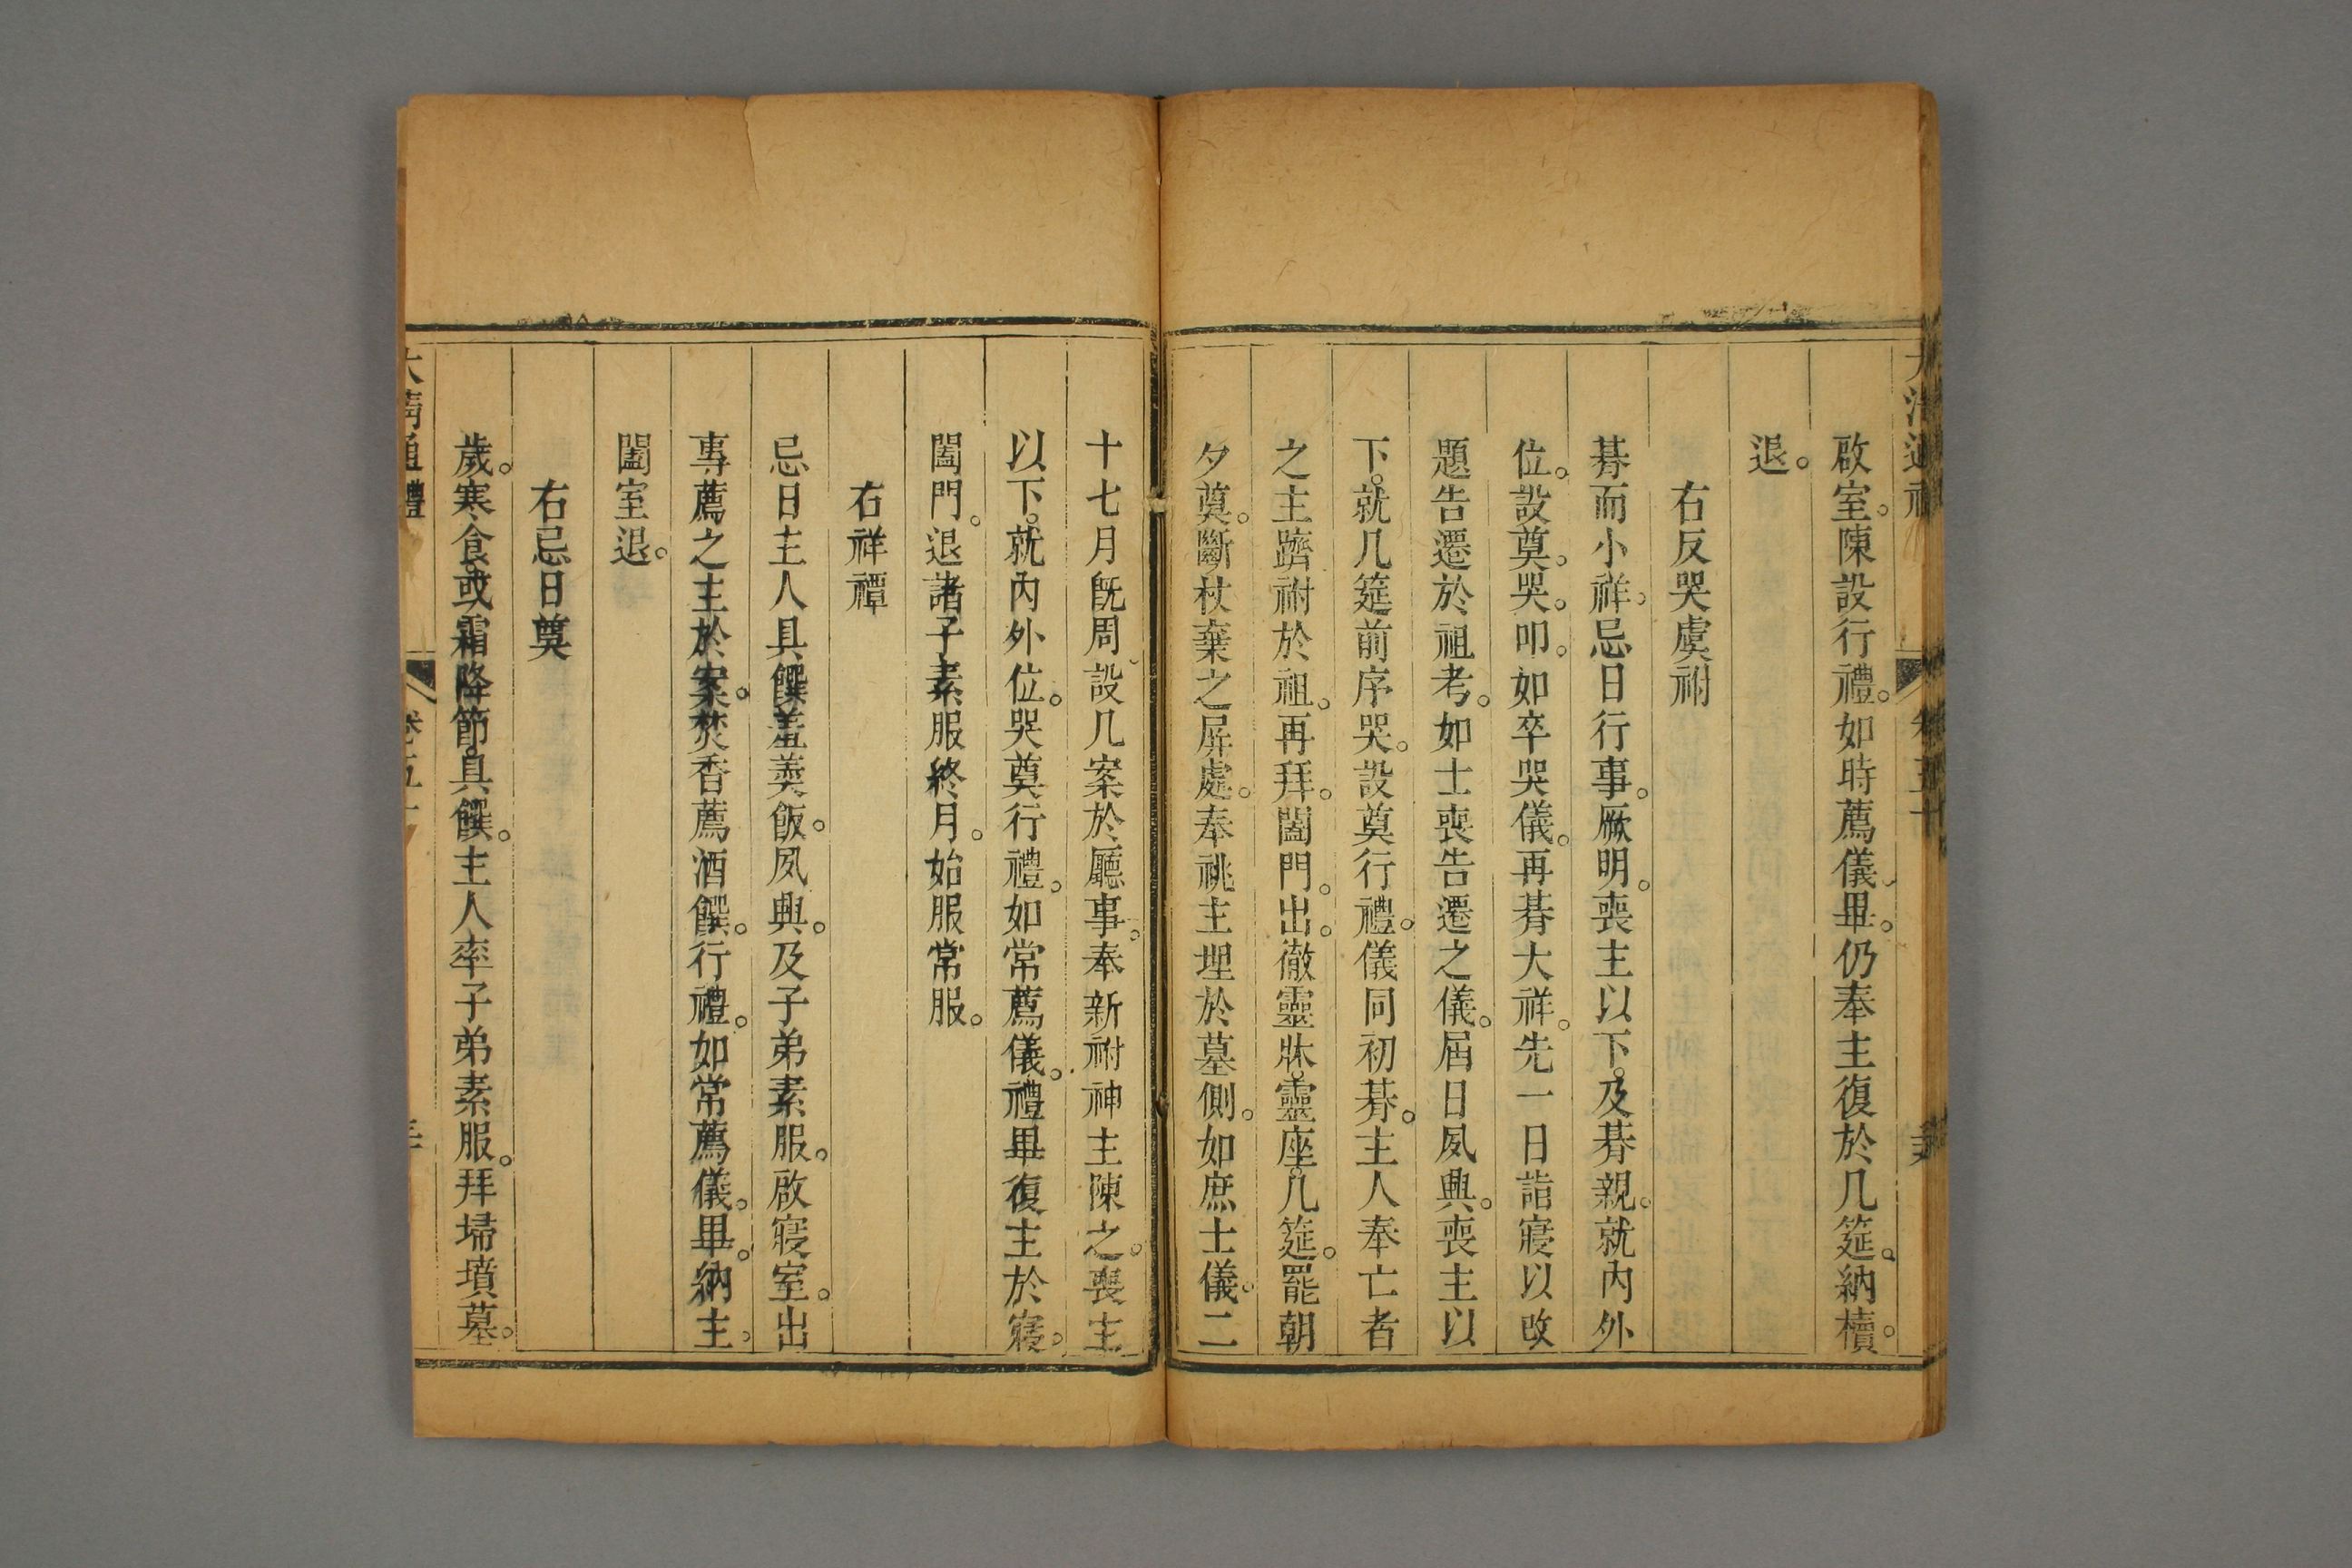 啟室。陳設行禮。如時薦儀。畢。仍奉主復於几筵。納櫝。
退。
右反哭虞祔
朞而小祥。忌日行事。厥明。喪主以下。及朞親。就內外
位。設奠。哭。叩。如卒哭儀。再朞大祥。先一日詣寢以改
題告遷於祖考。如士喪告遷之儀。屆日夙興。喪主以
下。就几筵前序哭。設奠行禮。儀同初朞。主人奉亡者
之主躋祔於祖。再拜。闔門。出。徹靈牀。靈座。几筵。罷朝
夕奠。斷杖棄之屏處。奉祧主埋於墓側。如庶士儀。二
十七月旣周。設几案於廳事。奉新祔神主陳之。喪主
以下。就內外位。哭奠行禮。如常薦儀。禮畢復主於寢。
闔門。退諸子素服終月。始服常服。
右祥禫
忌日主人具饌羞羮飯。夙興。及子弟素服。啟寢室。出
專薦之主於案。焚香薦酒饌。行禮。如常薦儀。畢。納主。
闔室退。
右忌日奠
歲。寒食。或霜降節。具饌。主人率子弟素服。拜埽墳墓。
大清通禮 卷五十